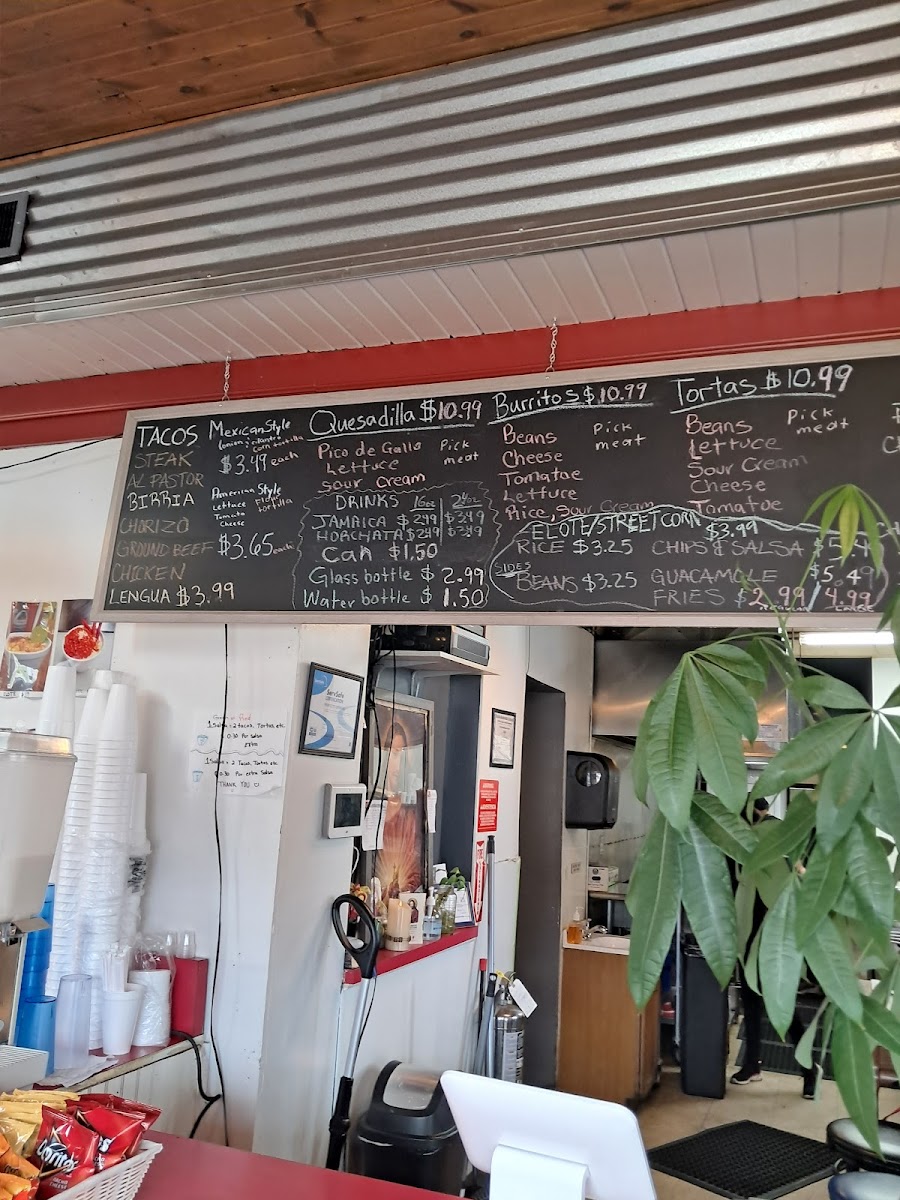 TACOS
STEAK
AL PASTOR
BIRRIA
CHORIZO
GROUND BEEF
CHICKEN
LENGUA $3.99
Mexican Style
corn tortilla
$3.49 each
American Style
Lettuce
Tomato
Cheese
tortilla
$3.65 each
Quesadilla $10.99
Pico de Gallo
Lettuce
Sour Cream
Pick
meat
DRINKS 16oz 24oz
JAMAICA $2.49 $3.49
HORCHATA $2.49 $3.49
Can $1.50
Glass bottle $2.99
Water bottle $1.50
Burritos $10.99
Beans
Cheese
Tomatoe
Lettuce
Rice, Sour Cream
Pick
meat
Tortas $10.99
Beans
Lettuce
Sour Cream
Cheese
Tomatoe
Pick
meat
ELOTE/STREET CORN $3.99
SIDES
RICE $3.25
BEANS $3.25
CHIPS & SALSA
GUACAMOLE $5.49
FRIES $2.99 / 4.99
Green or Red
1 Salsa = 2 tacos, Tortas etc
0.30 Per salsa
extra
1 Salsa = 2 Tacos, Tortas etc
0.30 Per extra Salsa
THANK YOU
ServSafe
Doritos